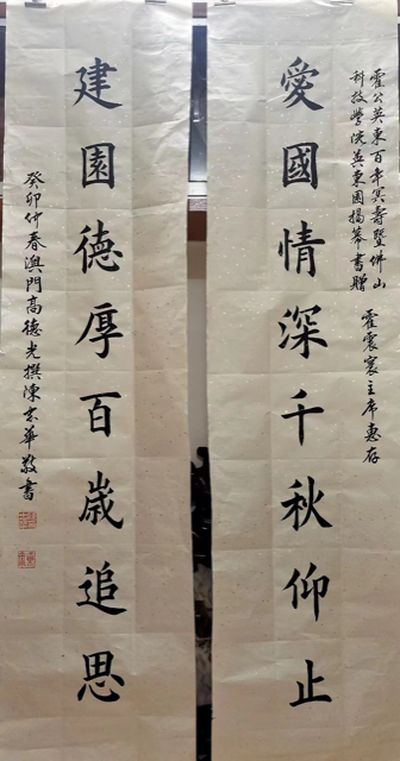 霍公英東百年冥壽暨佛山
科技學院英東園揚幕書贈
霍震寰主席惠存
愛國情深千秋仰止
建園德厚百歲追思
癸卯仲春澳門高德光撰陳志華敬書